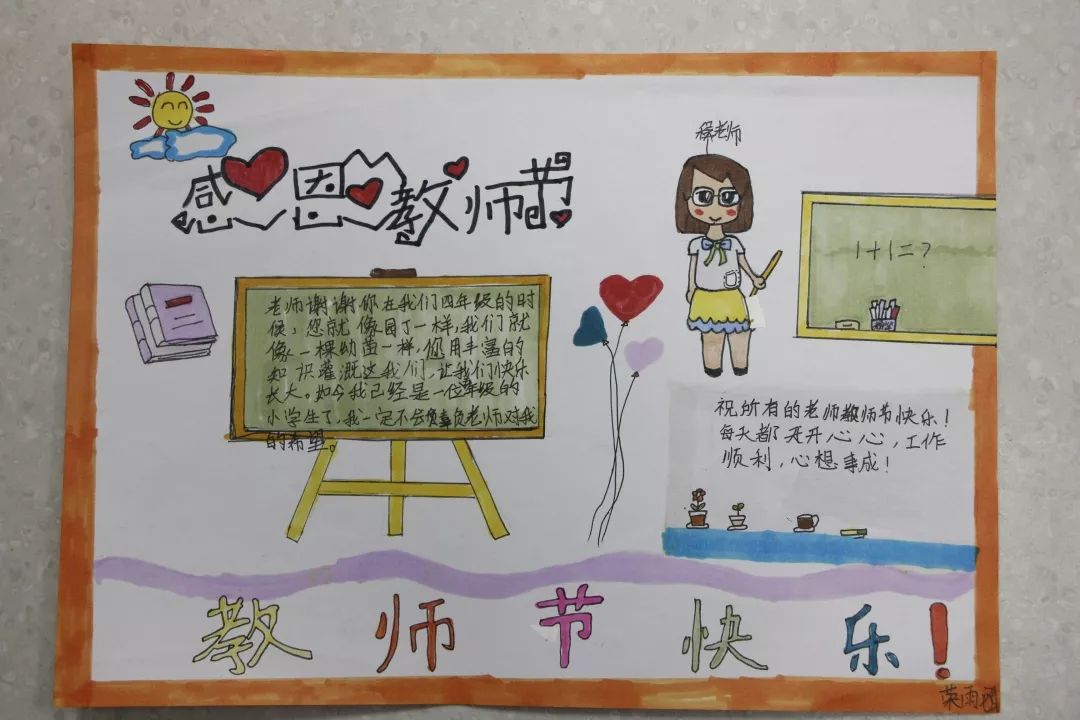 感恩教师节
老师
1+1=?
老师谢谢你在我们四年级的时
候,您就像园丁一样,我们就
像一棵幼苗一样,你用丰富的
知识灌溉这我们,让我们快乐
长大。如今我已经是一位年级的
小学生了,我一定不会辜负老师对我
的希望。
祝所有的老师教师节快乐!
每天都开开心心,工作
顺利,心想事成!
教师节快乐!
荣雨